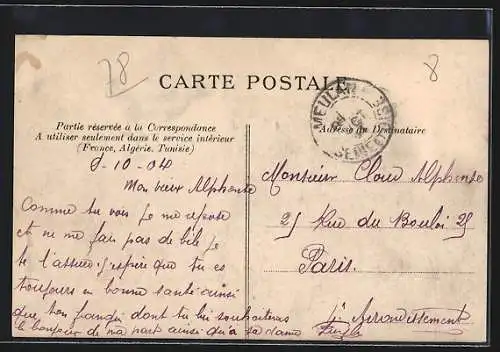 78
8
CARTE POSTALE
MEULAN
SEINE-ET-
Partie réservée à la Correspondance
A utiliser seulement dans le service intérieur
(France, Algérie, Tunisie)
Adresse du Destinataire
8-10-04
Mon vieux Alphonse
Comme tu vois je me repose
et ne me fais pas de bile je
te l'assure j'espère que tu es
toujours en bonne santé ainsi
que ton dont tu lui souhaiteras
le bonjour de ma part ainsi qu'a sa dame
Monsieur Cloud Alphonse
25 Rue du Bouloi 25
Paris.
1r Arrondissement